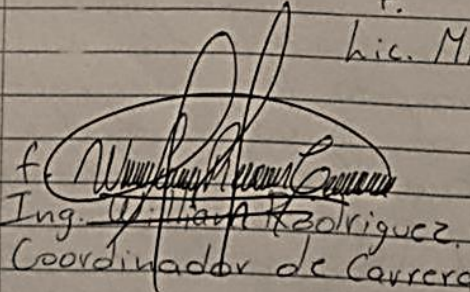 Lic. M
f.
Ing. William Rodriguez.
Coordinador de Carrera